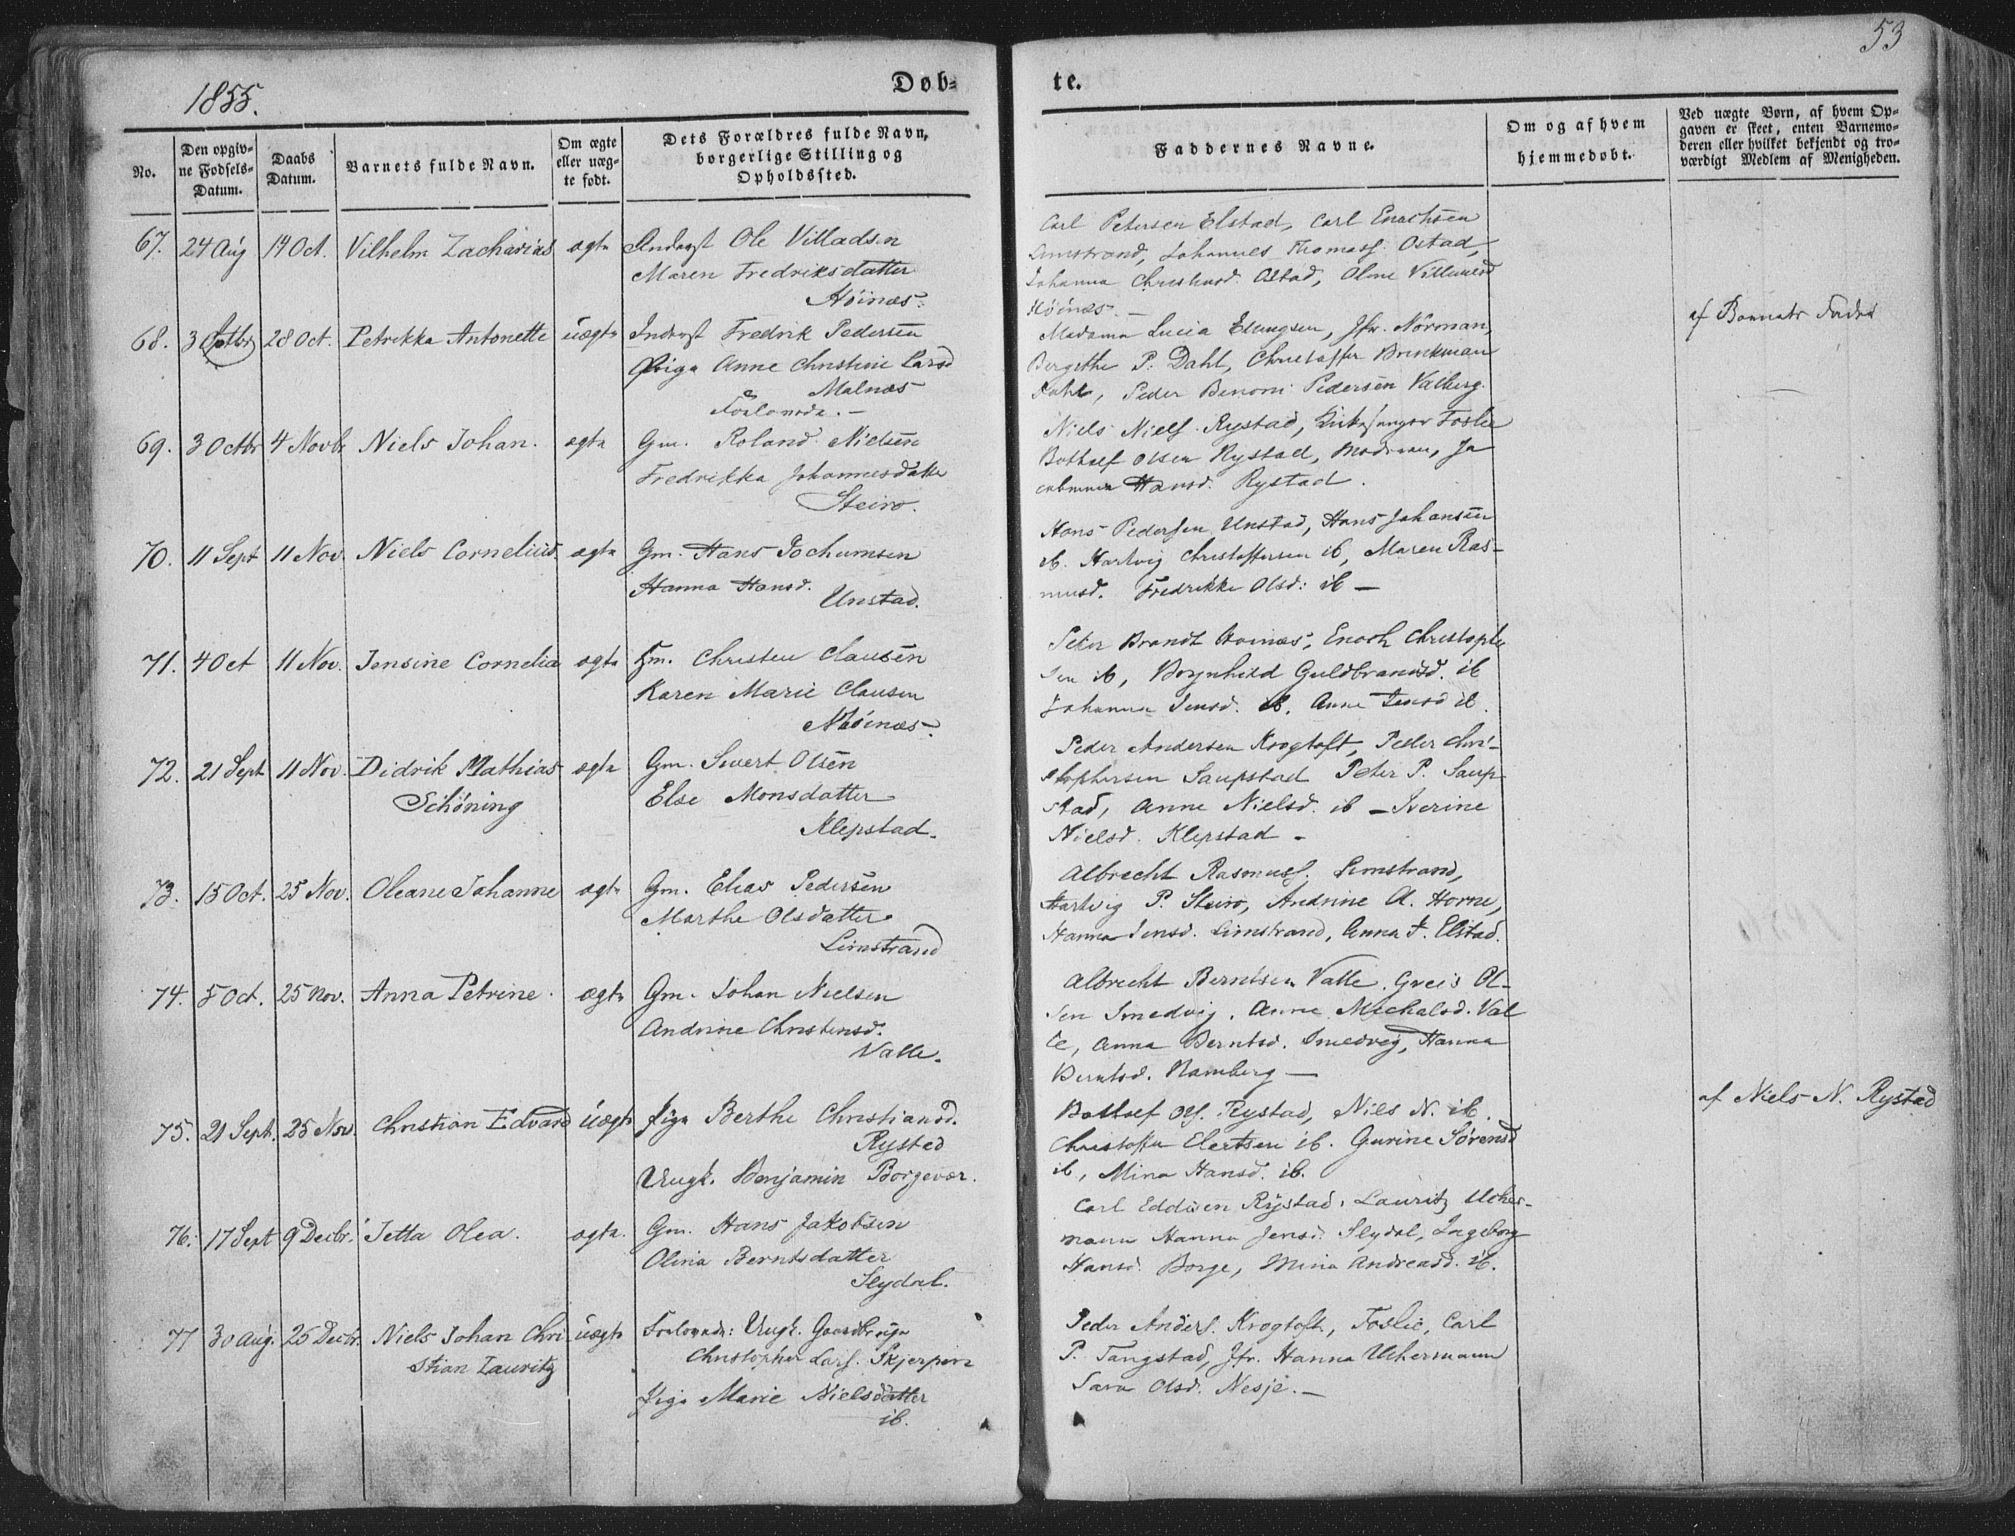 53
1855.
Døb-
te.
No.
Den opgiv-
ne Fødsels-
Datum.
Daabs
Datum.
Barnets fulde Navn.
Om ægte
eller uæg-
te født.
Dets Forældres fulde Navn,
borgerlige Stilling og
Opholdssted.
Faddernes Navne.
Om og af hvem
hjemmedøbt.
Ved uægte Børn, af hvem Op-
gaven er skeet, enten Barnemo-
deren eller hvilket bekjendt og tro-
værdigt Medlem af Menigheden.
67. 24 Aug 14 Oct. Vilhelm Zacharias ægte Inderst Ole Villadsen
Maren Fredriksdatter
Høinæs.
Carl Petersen Elstad, Carl Enochsen
Limstrand, Johannes Thomass. Ostad,
Johanna Christensd. Ostad, Olene Villumsd
Høinæs. —
68. 3 Octbr 28 Oct. Petrikka Antonette uægte Inderst Fredrik Pedersen
Pige Anne Christine Larsd
Malnæs
Forlovede. —
Madame Lucia Ellingsen, Jfr. Norman,
Bergithe P. Dahl, Christoffer Brinkman
Dahl, Peder Benoni Pedersen Valberg.
af Barnets Fader
69. 3 Octbr 4 Novbr Niels Johan. ægte Gm. Roland Nielsen
Fredrikka Johannesdatter
Steiro.
Niels Niels. Rystad, Kirkesanger Foslie
Bottolf Olsen Rystad, Moderen, Ja
cobmine Hansd. Rystad.
70. 11 Sept 11 Nov. Niels Cornelius ægte Gm. Hans Jochumsen
Hanna Hansd.
Unstad.
Hans Pedersen Unstad, Hans Johansen
ib. Hartvig Christoffersen ib, Maren Ras-
musd. Fredrikke Olsd: ib —
71. 4 Oct 11 Nov. Jensine Cornelia ægte Gm. Christen Clausen
Karen Marie Clausen
Høinæs.
Peter Brandt Hoinæs, Enoch Christophe
sen ib, Brynhild Guldbrandsd. ib
Johanna Jensd. ib. Anne Jensd ib.
72. 21 Sept 11 Nov. Didrik Mathias ægte Gm. Sivert Olsen
Schöning
Else Monsdatter
Klepstad.
Peder Andersen Krogtoft, Peder Chri-
stophersen Saupstad Peter P. Saup-
stad, Anne Nielsd. ib — Iverine
Nielsd. Klepstad —
73. 15 Oct. 25 Nov. Oleane Johanne ægte Gm. Elias Pedersen
Marthe Olsdatter
Limstrand
Albrecht Rasmuss. Limstrand,
Hartvig P. Steiro, Andrine A. Horne,
Hanna Jensd. Limstrand, Anna J. Elstad.
74. 5 Oct. 25 Nov. Anna Petrine. ægte Gm. Johan Nielsen
Andrine Christensd.
Valle.
Albrecht Berntsen Valle, Greis Ol-
sen Smedvig, Anne Michalsd. Val
le, Anna Berntsd. Smedvig, Hanna
Berntsd. Ramberg —
75. 21 Sept. 25 Nov. Christian Edvard uægte Pige Berthe Christiansd.
Rystad
Ungk. Benjamin Borgevær.
Bottolf Ols. Rystad, Niels N. ib.
Christoffer Elertsen ib. Gurine Sørensd
ib, Mina Hansd. ib.
af Niels N. Rystad
76. 17 Sept 9 Decbr. Jetta Olea. ægte. Gm. Hans Jakobsen
Olina Berntsdatter
Slydal.
Carl Eddisen Rystad, Lauritz Ucher-
mann Hanna Jensd. Slydal, Ingeborg
Hansd. Borge, Mina Andreasd. ib.
77 30 Aug. 26 Decbr. Niels Johan Chri uægte Forlovede: Ungk. Gaardbruger
stian Lauritz
Christopher Lars. Skjerpen
Pige Marie Nielsdatter
ib.
Peder Anders. Krogtoft, Foslie, Carl
P. Tangstad, Jfr. Hanna Uchermann
Sara Olsd. Nesje. —